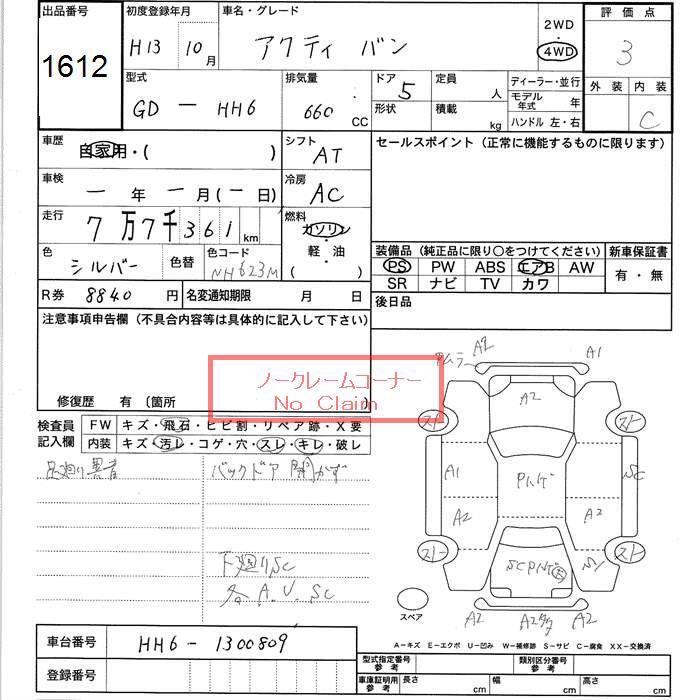 出品番号 初度登録年月 車名・グレード 評価点
1612 H13 10月 アクティ バン 2WD 4WD 3
型式 排気量 ドア 定員 ディーラー・並行 外装 内装
GD - HH6 660 CC 5 人 モデル年式 年 C
形状 積載 kg ハンドル 左・右
車歴 自家用・( ) シフト AT セールスポイント (正常に機能するものに限ります)
車検 - 年 - 月 (- 日) 冷房 AC
走行 7万7千361 km 燃料 ガソリン 軽・油 ( )
色 シルバー 色替 色コード NH623M
装備品 (純正品に限り○をつけてください) 新車保証書
PS PW ABS エアB AW 有・無
SR ナビ TV カワ
R券 8840 円 名変通知期限 月 日 後日品
注意事項申告欄 (不具合内容等は具体的に記入して下さい)
ノークレームコーナー
No Claim
修復歴 有 (箇所
検査員記入欄 FW キズ・飛石・ヒビ割・リペア跡・X要
内装 キズ・汚レ・コゲ・穴・スレ・キレ・破レ
バックドア 開かず
下廻りSC
各 A.U.SC
A2 A1
A2
A1 SC
A2 A2
スペア
A2 A2 A2
A-キズ E-エクボ U-凹み W-補修跡 S-サビ C-腐食 XX-交換済
車台番号 HH6-1300809
登録番号
型式指定番号 参考 類別区分番号 参考
車庫証明用 参考 長さ cm 幅 cm 高さ cm